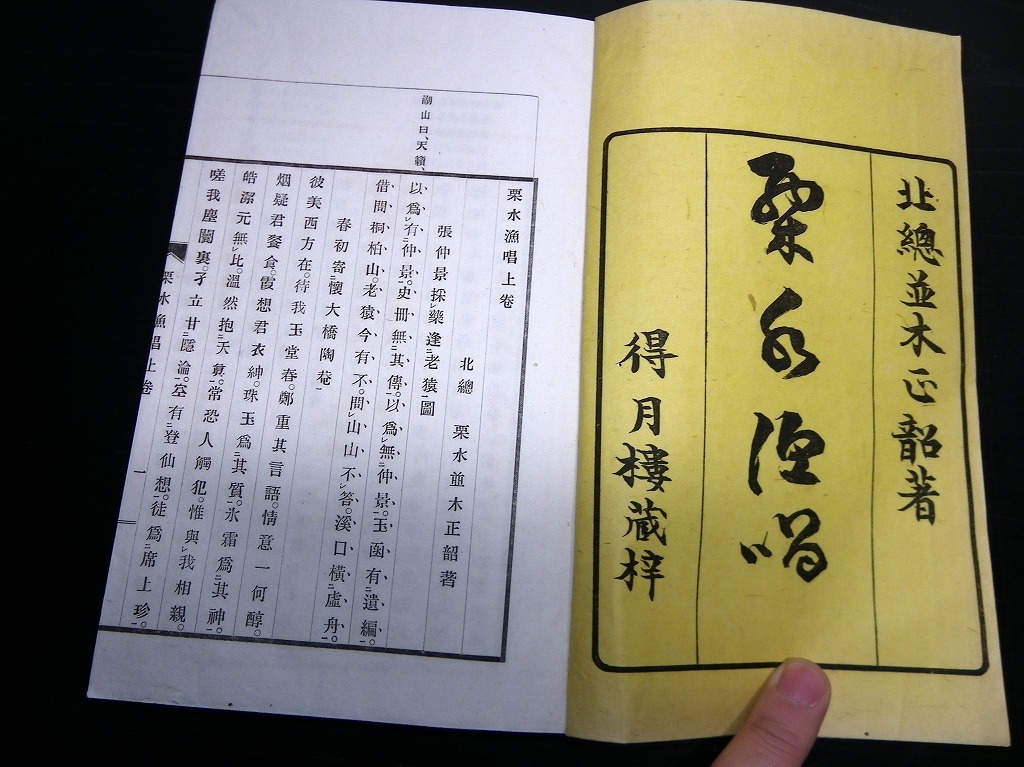 北總並木正韶著
栗水漁唱
得月樓藏梓
湖山曰、天籟、
栗水漁唱上卷
北總 栗水並木正韶著
張仲景採㆑藥逢㆓老猿㆒圖
以爲㆑有㆓仲景㆒。史冊無㆓其傳㆒。以爲㆑無㆓仲景㆒。玉凾有㆓遺編㆒。
借問桐柏山。老猿今有不。問㆑山山不㆑答。溪口橫㆓虛舟㆒。
春初寄㆓懷大橋陶菴㆒
彼美西方在。待我玉堂春。鄭重其言語。情意一何醇。
烟疑君餐食。霞想君衣紳。珠玉爲㆓其質㆒。氷霜爲㆓其神㆒。
皓潔元無㆑比。溫然抱㆓天眞㆒。常恐人觸犯。惟與㆑我相親。
嗟我塵闤裏。孑立甘㆓隱淪㆒。空有㆓登仙想㆒。徒爲㆓席上珍㆒。
栗水漁唱上卷 一